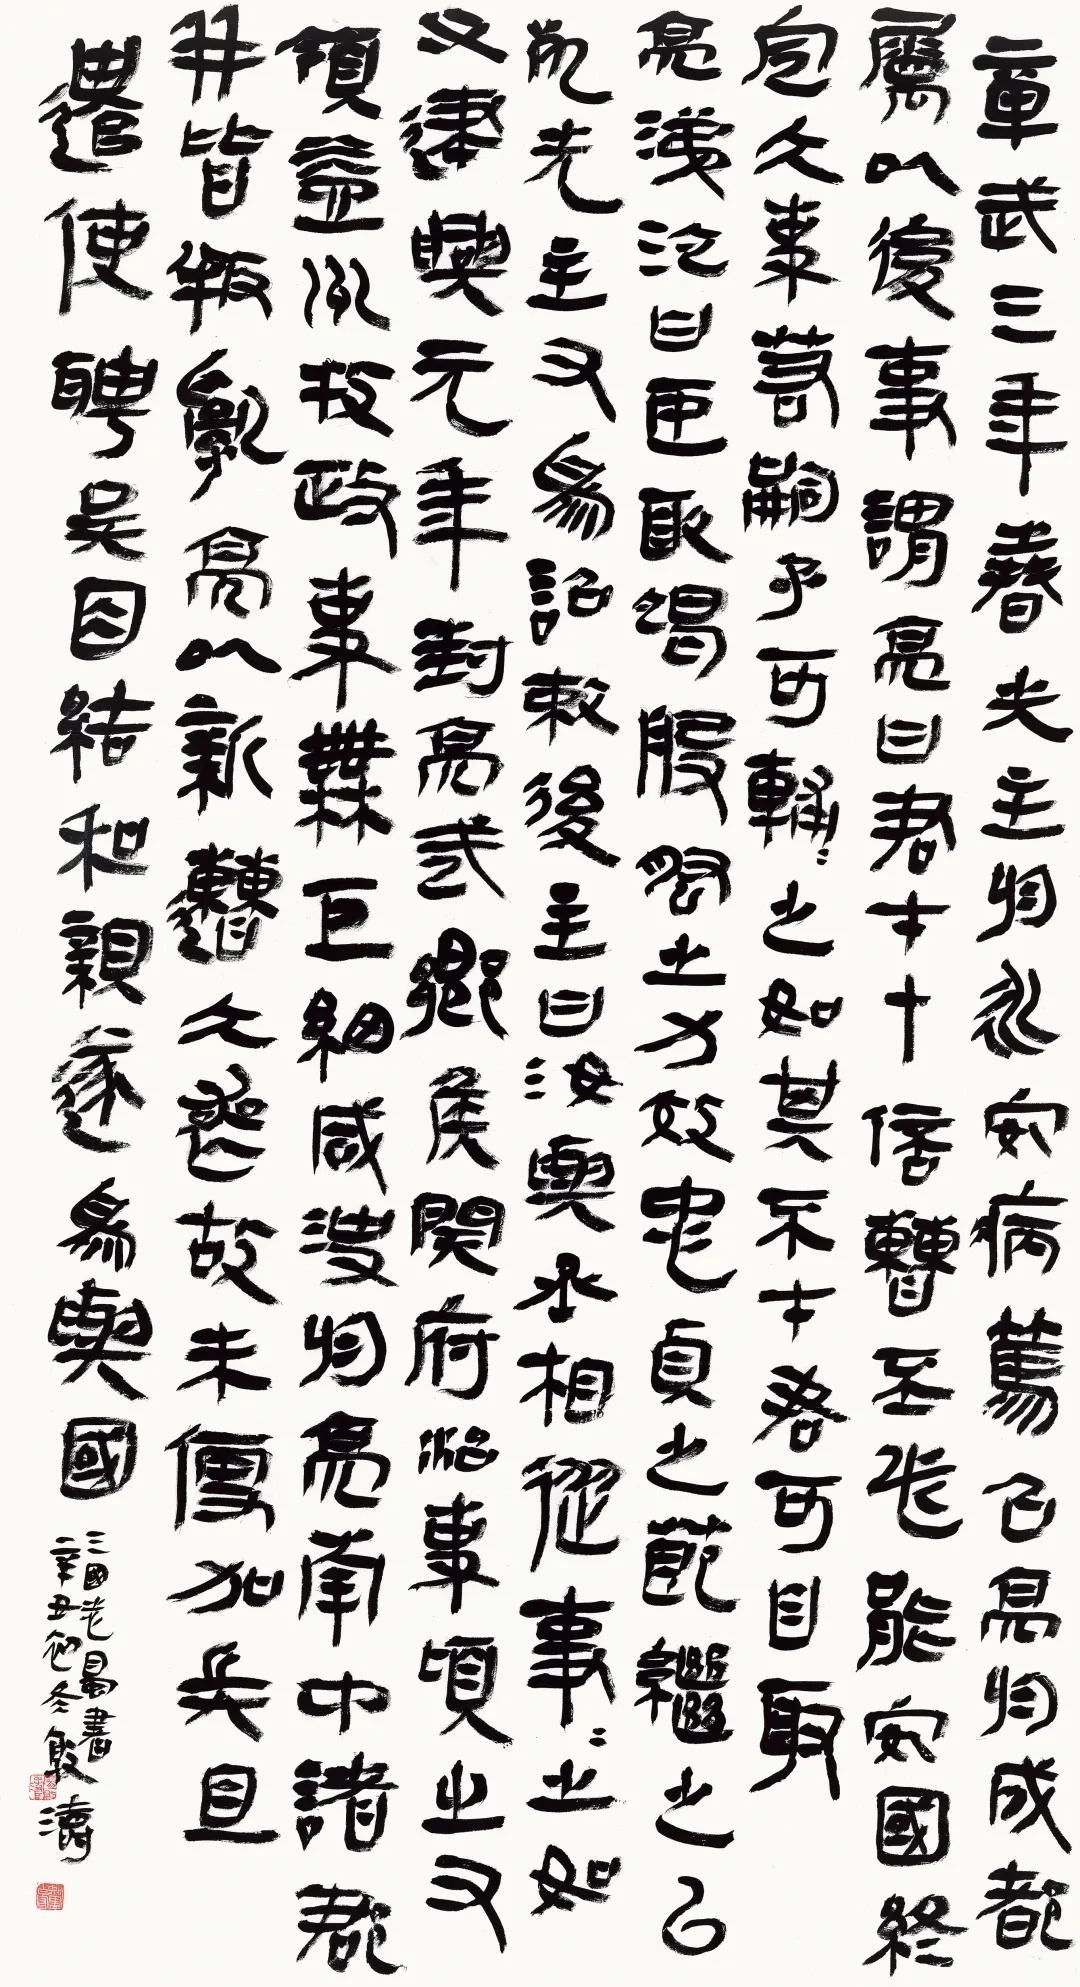 章武三年春先主於永安病篤召亮於成都
屬以後事謂亮曰君才十倍曹丕必能安國終
定大事若嗣子可輔〻之如其不才君可自取
亮涕泣曰臣敢竭股肱之力效忠貞之節繼之以
死先主又為詔敕後主曰汝與丞相從事〻之如
父建興元年封亮武鄉侯開府治事頃之又
領益州牧政事無巨細咸決於亮南中諸郡
并皆叛亂亮以新遭大喪故未便加兵且
遣使聘吳因結和親遂為與國
三國志蜀書
辛丑初冬敏濤